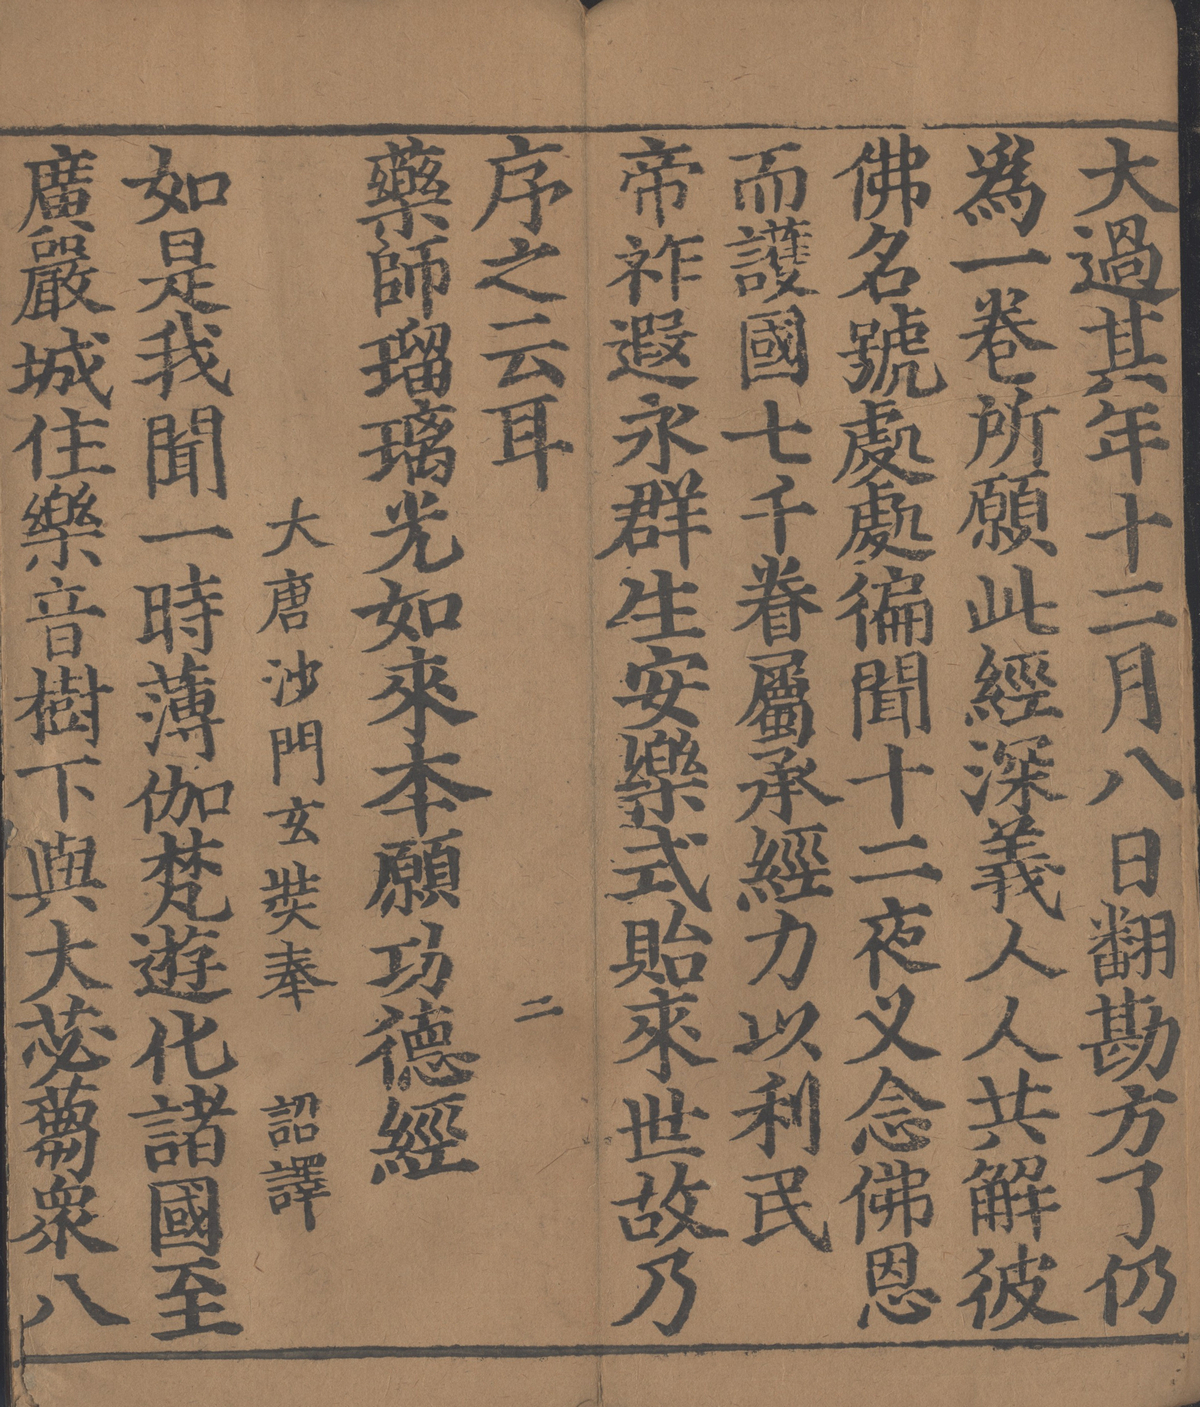 大過其年十二月八日翻勘方了仍
為一卷所願此經深義人人共解彼
佛名號處處徧聞十二夜叉念佛恩
而護國七千眷屬承經力以利民
帝祚遐永群生安樂式貽來世故乃
序之云耳
二
藥師瑠璃光如來本願功德經
大唐沙門玄奘奉 詔譯
如是我聞一時薄伽梵遊化諸國至
廣嚴城住樂音樹下與大苾蒭眾八